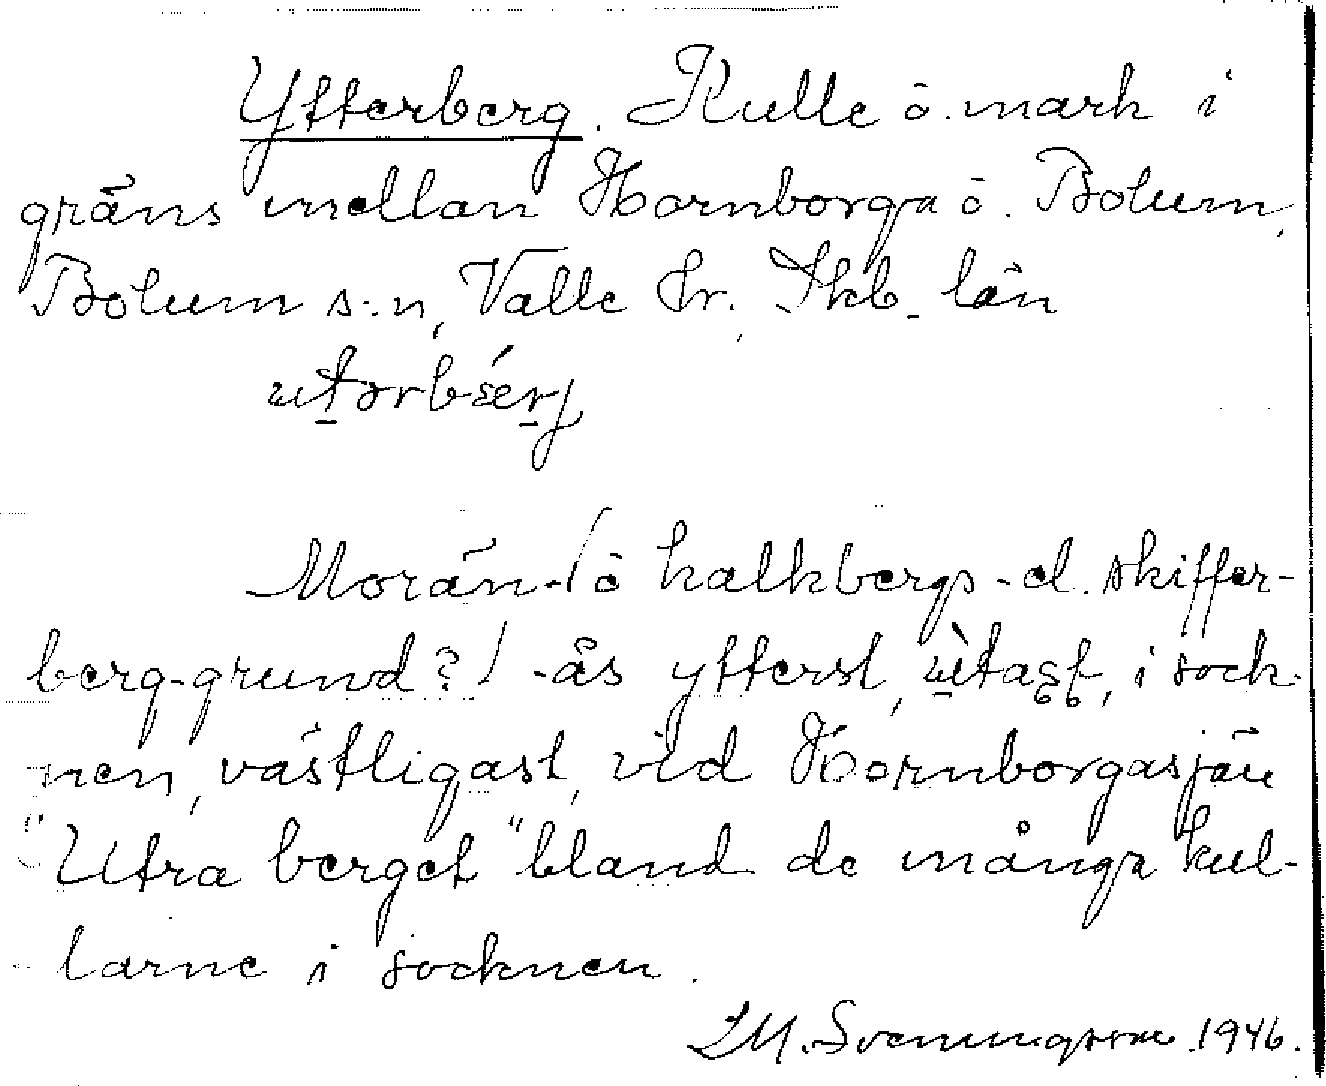 Ytterberg. Kulle o. mark i
gräns mellan Hornborga o. Bolum,
Bolum s:n, Valle Hr., Skb. län
utərbærj
Morän-(o kalkbergs- el. skiffer-
berg-grund?) -ås ytterst, utast, i sock-
nen, västligast, vid Hornborgasjön
"Utra berget" bland de många kul-
larne i socknen.
I M. Svenungsson 1946.